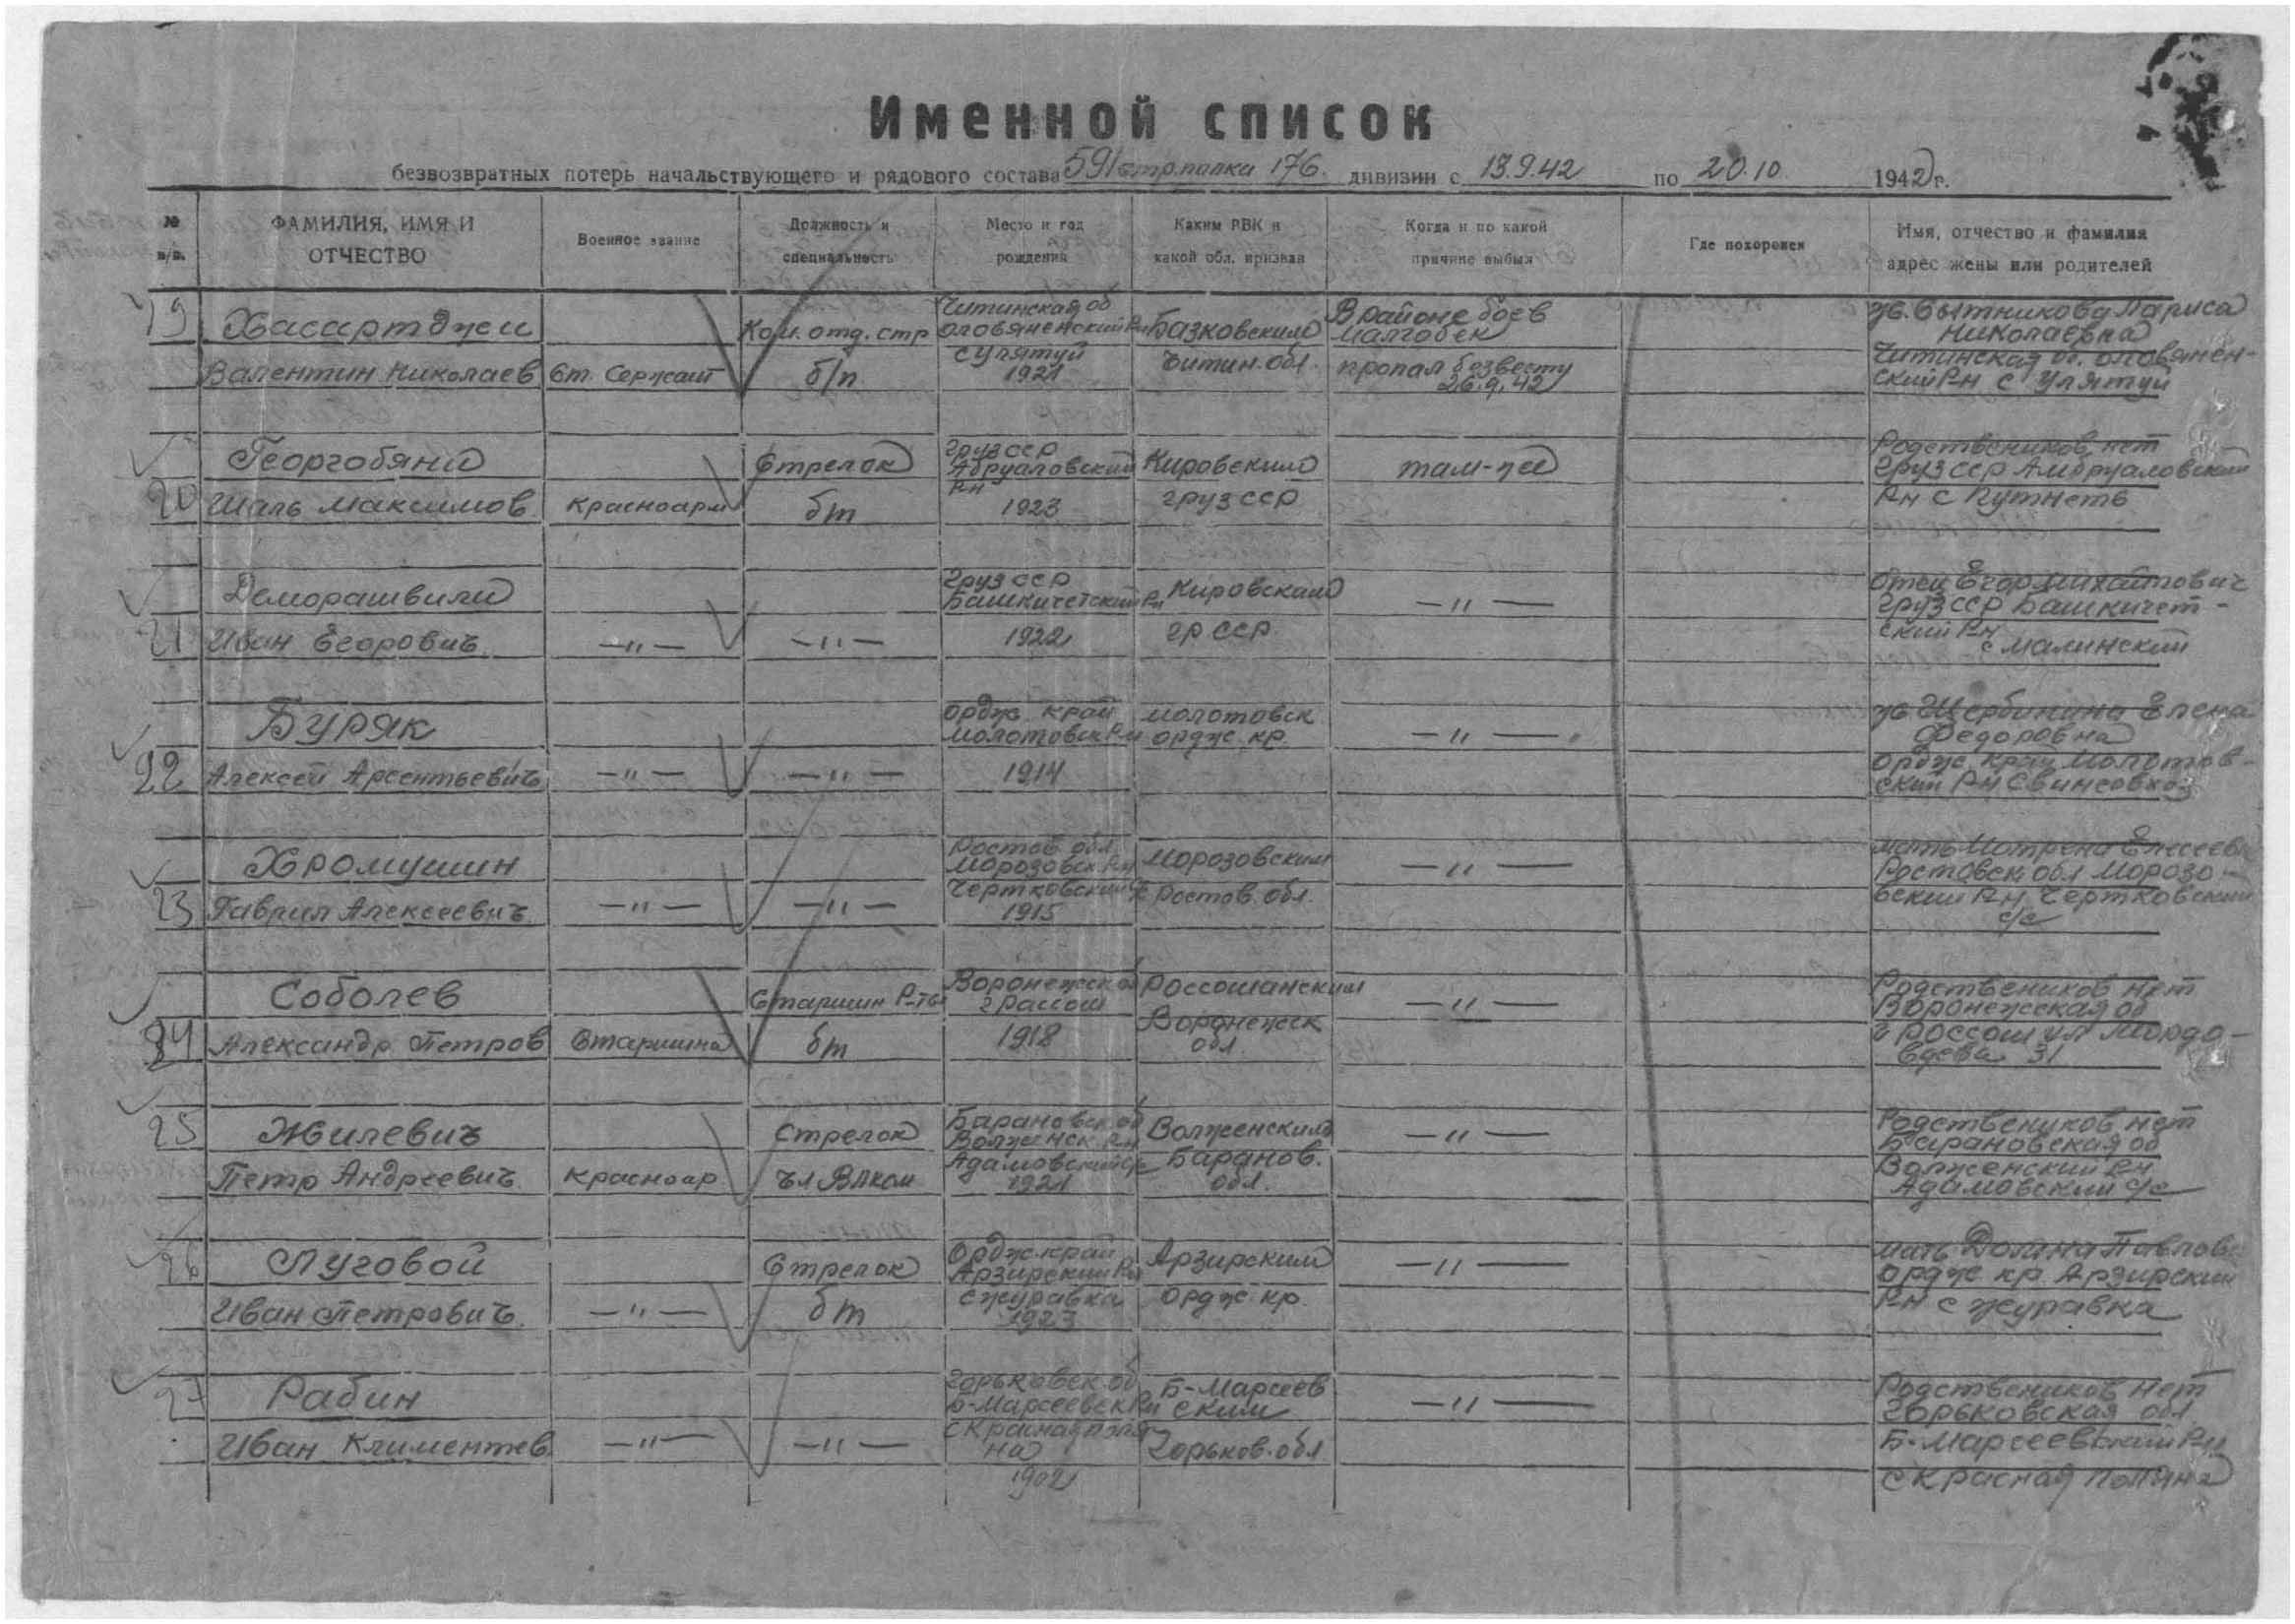 Именной список
безвозвратных потерь начальствующего и рядового состава 591 стр. полка 176 дивизии с 13.9.42 по 20.10 1942 г.
№ п/п. ФАМИЛИЯ, ИМЯ И ОТЧЕСТВО Военное звание Должность и специальность Место и год рождения Каким РВК и какой обл. призван Когда и по какой причине выбыл Где похоронен Имя, отчество и фамилия адрес жены или родителей
19 Хасартджи
Валентин Николаев
Ст. Сержант
Ком. отд. стр
б/п
Читинская об
оловяненский Рн
с Улятуй
1921
Базковским
Читин. обл.
В районе боев
Малгобек
пропал безвесту
26.9.42
жв. Сытникова Лариса
Николаевна
Читинская об. оловянен-
ский Р-н с Улятуй
20 Георгобяни
Шаль Максимов
Красноарм
Стрелок
бт
груз сср
Абруаловский
Рн
1923
Кировским
груз сср
там-же
Родствеников нет
Груз сср Амбруаловский
Рн с Путнеть
21 Деморашвили
Иван Егорович
—"—
—"—
Груз сср
Башкичетский Рн
1922
Кировским
гр сср
—"—
отец Егор Михайтович
груз сср Башкичет-
ский Р-н
с Малинский
22 Буряк
Алексей Арсентьевичъ
—"—
—"—
ордж. край
Молотовск Р-н
1914
молотовск
ордже кр.
—"—
жв Щербинина Елена
Федоровна
Ордже край Молотов-
ский Р-н Свинсовхоз
23 Хромушин
Гаврил Алексеевичъ
—"—
—"—
Ростов обл
Морозовск Р-н
Чертковский с/с
1915
Морозовским
Ростов. обл.
—"—
мать Мотрена Елесеев
Ростовск обл Морозо-
вский Р-н Чертковский
с/с
24 Соболев
Александр Петров
Старшина
Старшин Р-ты
бт
Воронежск об
г Рассош
1918
Россошанским
Воронежск
обл.
—"—
Родствеников нет
Воронежская об
г Россош ул Мордо-
вцева 31
25 Жилевич
Петр Андреевичъ
Красноар
Стрелок
чл ВЛКСМ
Барановск об
Волженск Р-н
Адамовский с/с
1921
Волженским
Баранов.
обл.
—"—
Родствеников нет
Барановская об
Волженский Рн
Адамовский с/с
26 Луговой
Иван Петрович
—"—
Стрелок
бт
Ордж край
Арзирский Рн
с журавка
1923
Арзирским
Ордж кр.
—"—
мать Долина Павлов
ордж кр Арзирский
Р-н с журавка
27 Рабин
Иван Климентев
—"—
—"—
Горьковск об
Б-Марсеевск Рн
с Красная поля
на
1902
Б-Марсеев
ским
Горьков. обл
—"—
Родствеников нет
Горьковская обл
Б-Марсеевский Р-н
с Красная поляна